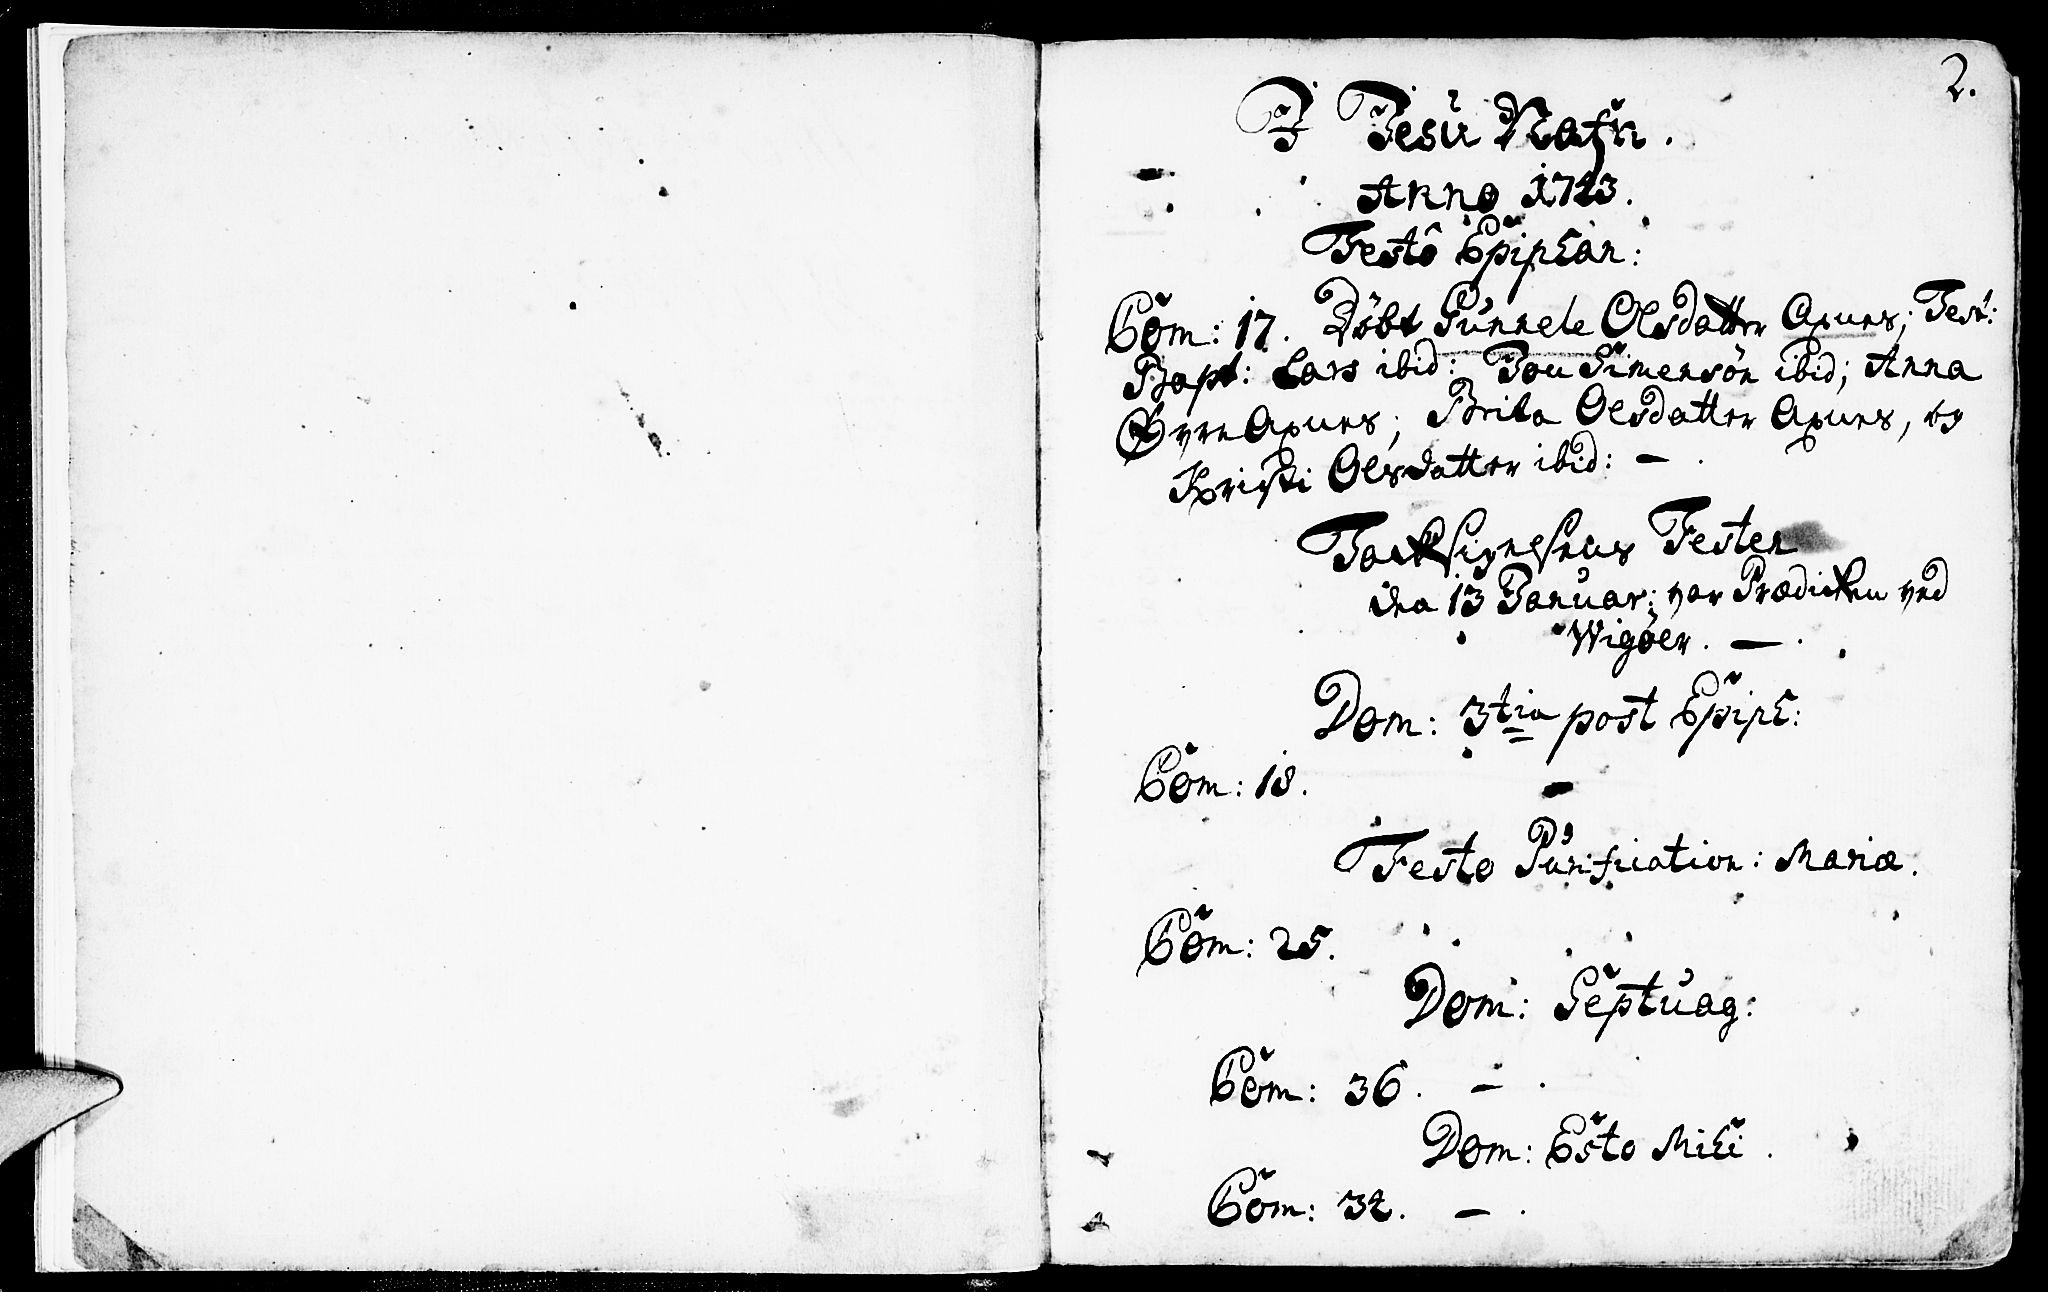 2.
I Jesu Nafn.
Anno 1743.
Festo Epiphan:
Com: 17. Döbt Gunnele Olsdatter Axnes; Test:
Bapt: Lars ibid: Jon Simensön ibid; Anna
Axnes; Brita Olsdatter Axnes, og
Kristi Olsdatter ibid: —
Taksigelses Festen
den 13 Januar: var Prædicken ved
Wigöer. —
Dom: 3tia post Epiph:
Com: 18.
Festo Purification: Mariæ.
Com: 25.
Dom: Septuag:
Com: 36. —
Dom: Esto Mihi.
Com: 32. —